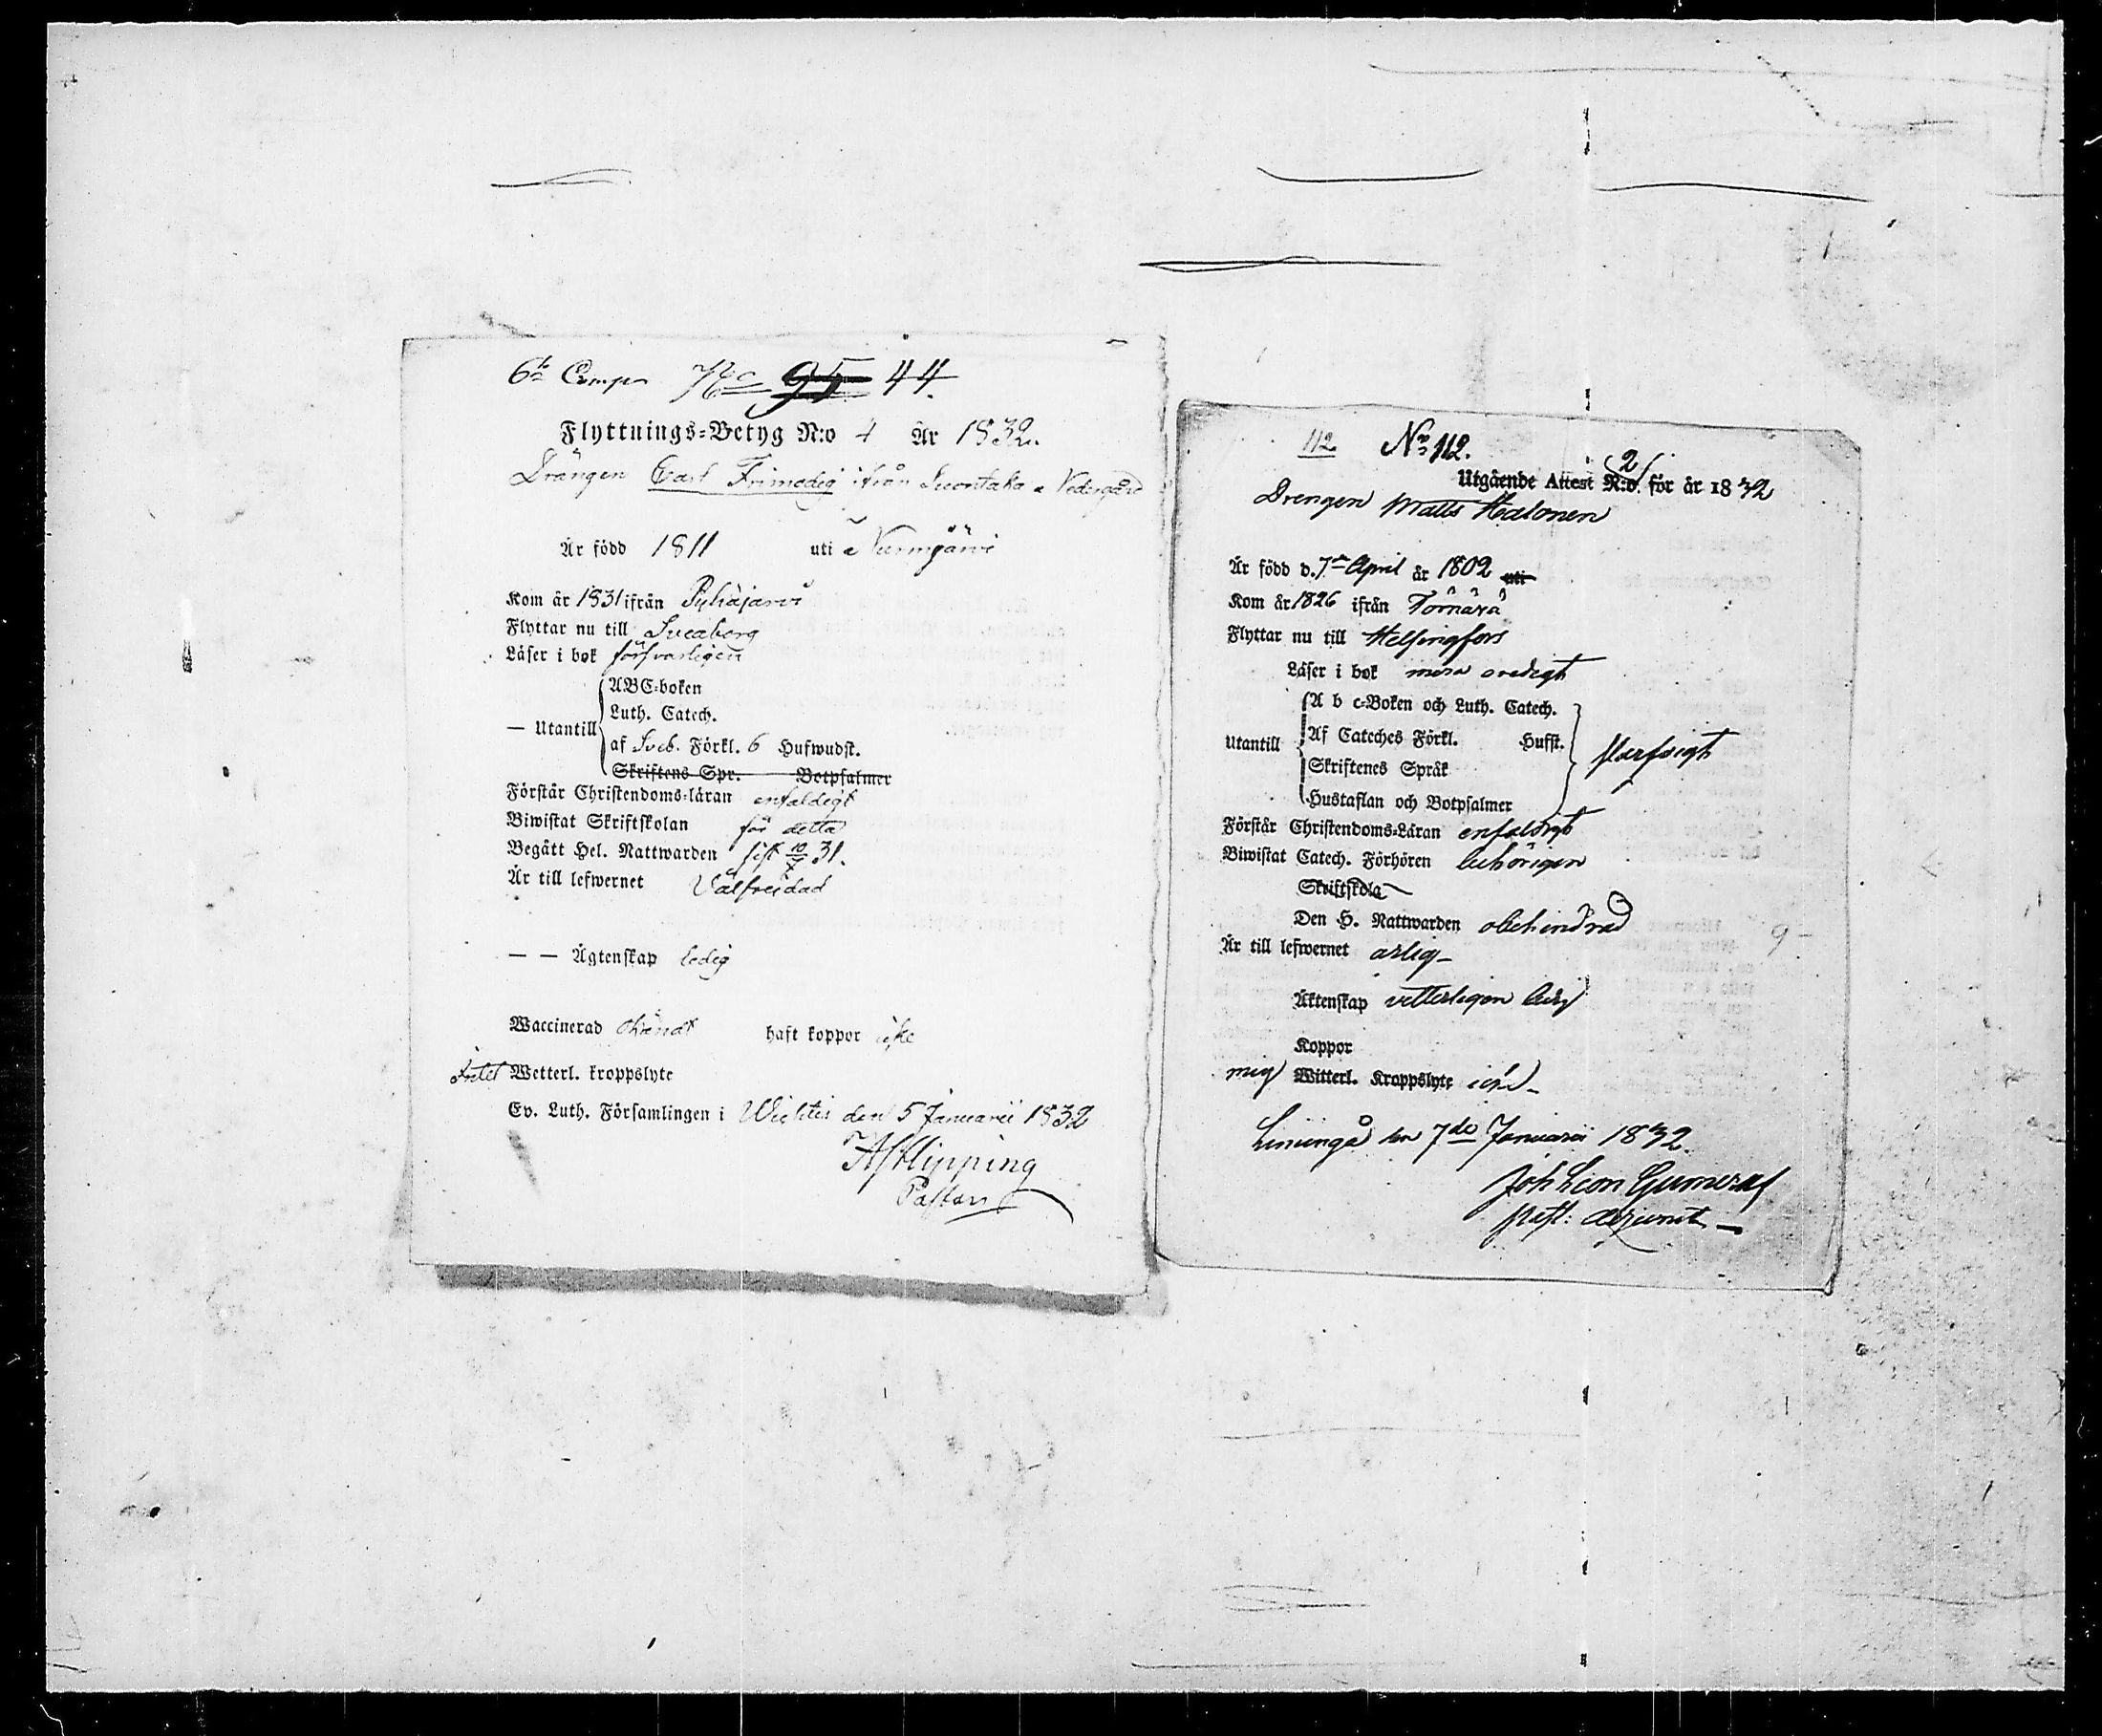 6te Comp. 76 95 44.
Flyttnings-Betyg N:o 4 År 1832.
Drängen Carl Frimodig ifrån Suontaka Nedergård
Är född 1811 uti Nurmijärvi
Kom år 1831 ifrån Pyhäjärvi
Flyttar nu till Sveaborg
Läser i bok försvarligen
— Utantill
ABC-boken
Luth. Catech.
af Sveb. Förkl. 6 Hufwudst.
Skriftens Spr. Botpsalmer
Förstår Christendoms-läran enfaldigt
Biwistat Skriftskolan för detta
Begått Hel. Nattwarden sist 10/7 31.
Är till lefwernet Välfrejdad
— — Ägtenskap ledig
Waccinerad okändt haft koppor icke
Intet Wetterl. kroppslyte
Ev. Luth. Församlingen i Wichtis den 5 Januarii 1832
Hipping
Pastor
112 No 112.
Utgående Attest N:o. 2 för år 1832
Drengen Matts Halonen
Är född d. 7de April år 1802 uti
Kom år 1826 ifrån
Flyttar nu till Helsingfors
Läser i bok mera oredigt
Utantill
A b c-Boken och Luth. Catech.
Af Cateches Förkl. Hufst.
Skriftenes Språk
Hustaflan och Botpsalmer
Förstår Christendoms-Läran enfaldigt
Biwistat Catech. Förhören behörigen
Skriftskola
Den H. Nattwarden obehindrad
Är till lefwernet ärlig
Äktenskap vetterligen ledig
Koppor
mig Witterl. Kroppslyte
den 7de Januarii 1832.
Joh
adjunct